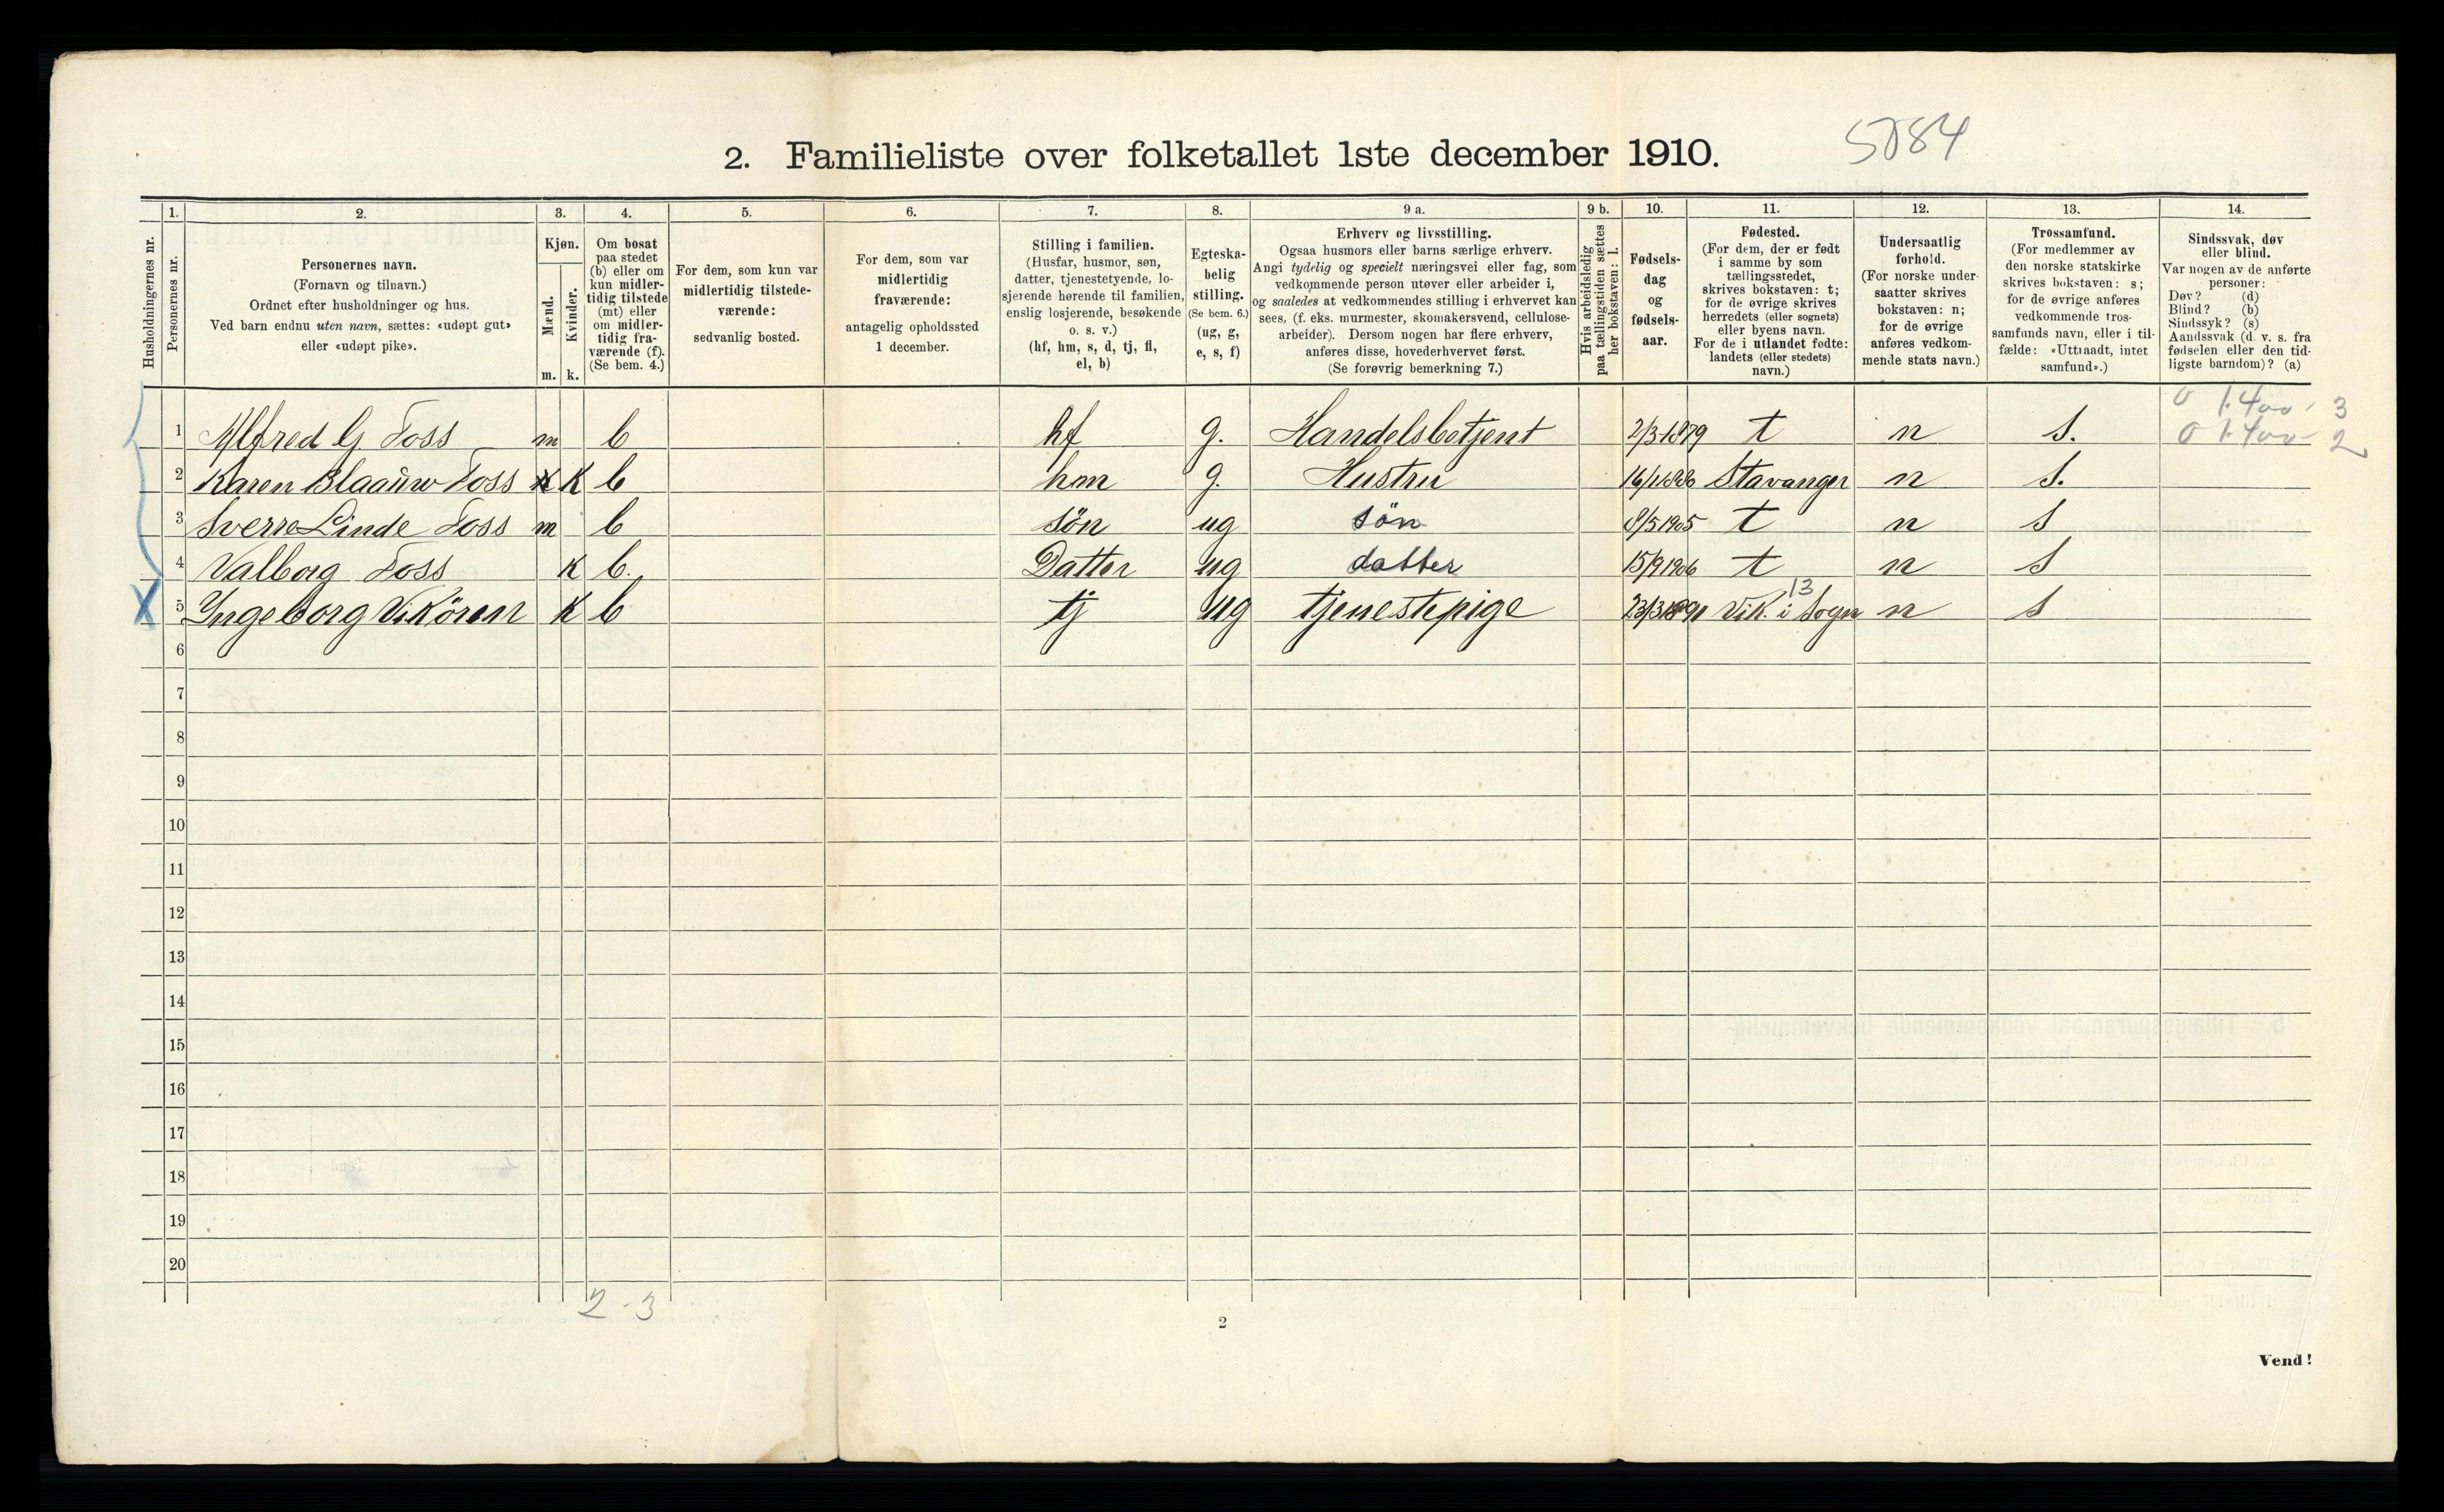 2. Familieliste over folketallet 1ste december 1910.
5084
1. 2. 3. 4. 5. 6. 7. 8. 9 a. 9 b. 10. 11. 12. 13. 14.
Husholdningernes nr.
Personernes nr.
Personernes navn.
(Fornavn og tilnavn.)
Ordnet efter husholdninger og hus.
Ved barn endnu uten navn, sættes: «udøpt gut»
eller «udøpt pike».
Kjøn.
Mænd.
Kvinder.
m. k.
Om bosat
paa stedet
(b) eller om
kun midler-
tidig tilstede
(mt) eller
om midler-
tidig fra-
værende (f).
(Se bem. 4.)
For dem, som kun var
midlertidig tilstede-
værende:
sedvanlig bosted.
For dem, som var
midlertidig
fraværende:
antagelig opholdssted
1 december.
Stilling i familien.
(Husfar, husmor, søn,
datter, tjenestetyende, lo-
sjerende hørende til familien,
enslig losjerende, besøkende
o. s. v.)
(hf, hm, s, d, tj, fl,
el, b)
Egteska-
belig
stilling.
(Se bem. 6.)
(ug, g,
e, s, f)
Erhverv og livsstilling.
Ogsaa husmors eller barns særlige erhverv.
Angi tydelig og specielt næringsvei eller fag, som
vedkommende person utøver eller arbeider i,
og saaledes at vedkommendes stilling i erhvervet kan
sees, (f. eks. murmester, skomakersvend, cellulose-
arbeider). Dersom nogen har flere erhverv,
anføres disse, hovederhvervet først.
(Se forøvrig bemerkning 7.)
Hvis arbeidsledig
paa tællingstiden sættes
her bokstaven: l.
Fødsels-
dag
og
fødsels-
aar.
Fødested.
(For dem, der er født
i samme by som
tællingsstedet,
skrives bokstaven: t;
for de øvrige skrives
herredets (eller sognets)
eller byens navn.
For de i utlandet fødte:
landets (eller stedets)
navn.)
Undersaatlig
forhold.
(For norske under-
saatter skrives
bokstaven: n;
for de øvrige
anføres vedkom-
mende stats navn.)
Trossamfund.
(For medlemmer av
den norske statskirke
skrives bokstaven: s;
for de øvrige anføres
vedkommende tros-
samfunds navn, eller i til-
fælde: «Uttraadt, intet
samfund».)
Sindssvak, døv
eller blind.
Var nogen av de anførte
personer:
Døv? (d)
Blind? (b)
Sindssyk? (s)
Aandssvak (d. v. s. fra
fødselen eller den tid-
ligste barndom)? (a)
0 1.400 - 3
1 Alfred G. Foss m b hf g. Handelsbetjent 2/3 1879 t n s. 0 1.400 - 2
2 Karen Blaauw Foss K b hm g. Hustru 16/1 1880 Stavanger n s.
3 Sverre Linde Foss m b søn ug søn 8/5 1905 t n s
4 Valborg Foss K b. Datter ug datter 15/9 1906 t n s
13
X 5 Ingeborg Vikören K b tj ug tjenestepige 23/3 1891 Vik. i Sogn n s
6
7
8
9
10
11
12
13
14
15
16
17
18
19
20
2 - 3
2
Vend!